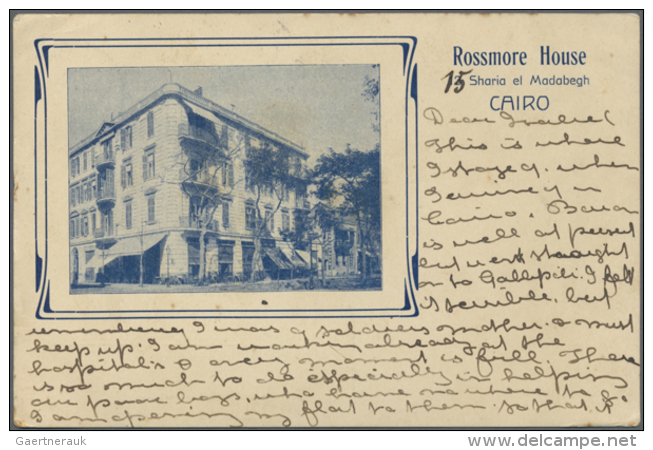 Rossmore House
15 Sharia el Madabegh
CAIRO
Dear Isabel
This is where
I stayed, when
I arrived in
Cairo.
is well at present
but went straight
on to Gallipili. I felt
it terrible, but
remembering I was a soldiers mother. I must
keep up. I am working already at the
hospitals & every moment is full. There
is so much to do especially in helping
our poor boys, who have no where to go
I am opening my flat to them. so that if
Gaertnerauk
www.delcampe.net